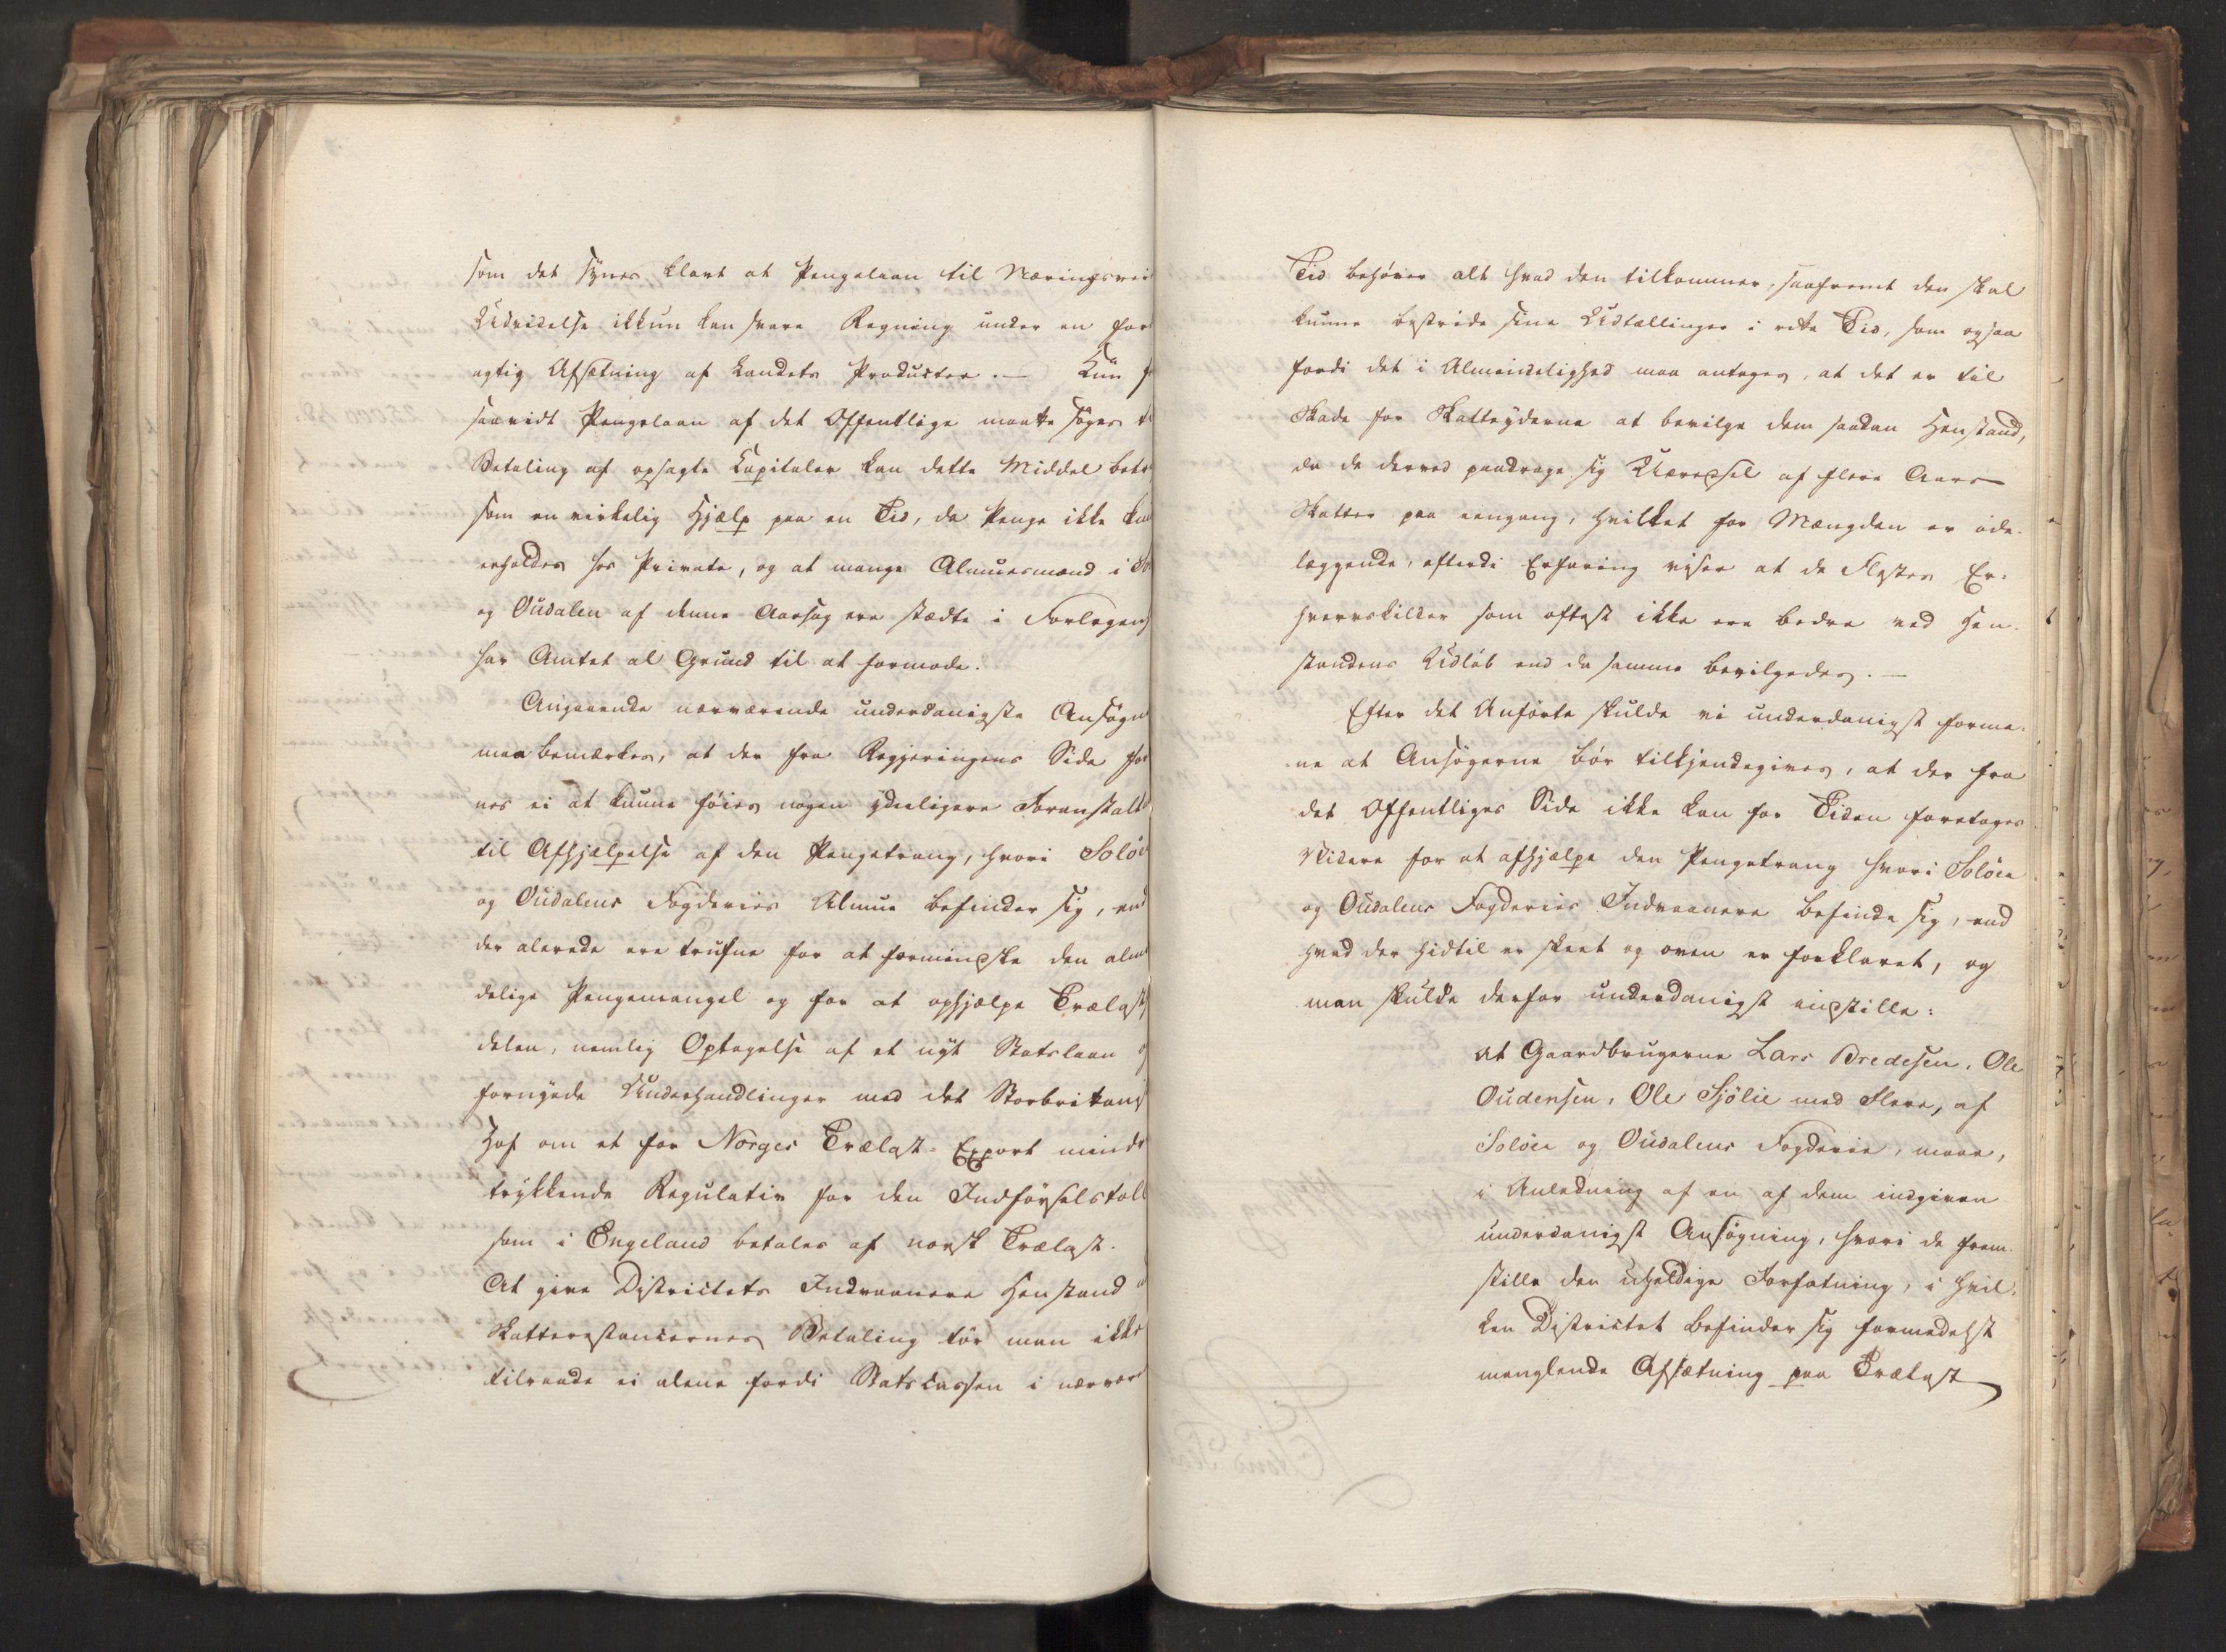 som det synes klart at Pengelaan til Næringsvei
Udvidelse ikkun kan svare Regning under en for
agtig Afsætning af Landets Producter. — Kun
saavidt Pengelaan af det Offentlige maatte søges
Betaling af opsagte Capitaler kan dette Middel
som en virkelig Hjælp paa en Tid, da Penge ikke
erholdes hos Private, og at mange Almuesmænd i
og Oudalen af denne Aarsag ere stædte i Forlegen
har Amtet al Grund til at formode.
Angaaende nærværende underdanigste Ansøgn
maa bemærkes, at der fra Regjeringens Side
nes ei at kunne føies nogen yderligere Foranstalt
til Afhjælpelse af den Pengetrang, hvori Soløe
og Oudalens Fogderies Almue befinder sig, end
der alerede ere trufne for at formindske den alm
delige Pengemangel og for at ophjælpe Trælast
delen, nemlig Optagelse af et nyt Statslaan
fornyede Underhandlinger med det Storbritans
Hof om et for Norges Trælast-Export mindr
trykkende Regulativ for den Indførselstold
som i Engeland betales af norsk Trælast.
At give Districtets Indvaanere Henstand
Skatterestancernes Betaling tør man ikke
tilraade ei alene fordi Statscassen i nærvær
Tid behøver alt hvad den tilkommer, saafremt den skal
kunne bestride sine Udtællinger i rette Tid, som ogsaa
fordi det i Almindelighed maa antages, at det er til
Skade for Skatteyderne at bevilge dem saadan Henstand,
da de derved paadrage sig Udredsel af flere Aars
Skatter paa eengang, hvilket for Mængden er øde-
læggende, efterdi Erfaring viser at de Flestes Er-
hvervskilder som oftest ikke ere bedre ved Hen-
standens Udløb end da samme bevilgedes. —
Efter det Anførte skulde vi underdanigst forme-
ne at Ansøgerne bør tilkjendegives, at der fra
det Offentliges Side ikke kan for Tiden foretages
Videre for at afhjælpe den Pengetrang hvori Soløer
og Oudalens Fogderies Indvaanere befinde sig, end
hvad der hidtil er skeet og oven er forklaret, og
man skulde derfor underdanigst indstille:
at Gaardbrugerne Lars Bredesen, Ole
Oudensen, Ole Sjølie med Flere, af
Soløer og Oudalens Fogderie, maae,
i Anledning af en af dem indgiven
underdanigst Ansøgning, hvori de frem-
stille den uheldige Forfatning, i hvil-
ken Districtet befinder sig formedelst
manglende Afsætning paa Trælast